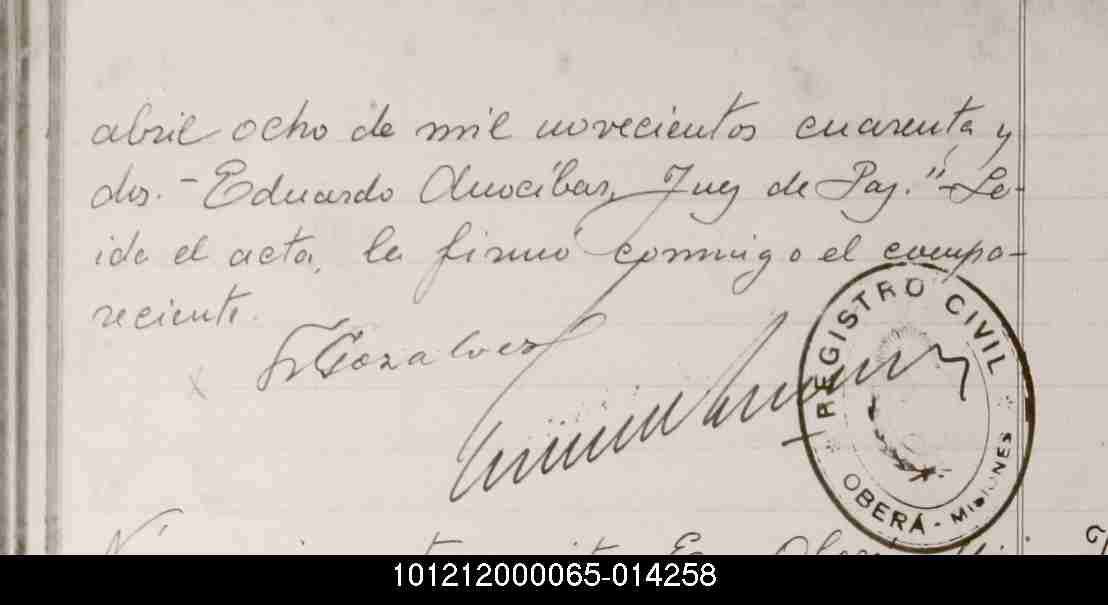 abril ocho de mil novecientos cuarenta y
dos.- Eduardo Anocíbar, Juez de Paz."-Le-
ida el acta, la firmó conmigo el compa-
reciente.
REGISTRO CIVIL
OBERÁ - MISIONES
101212000065-014258